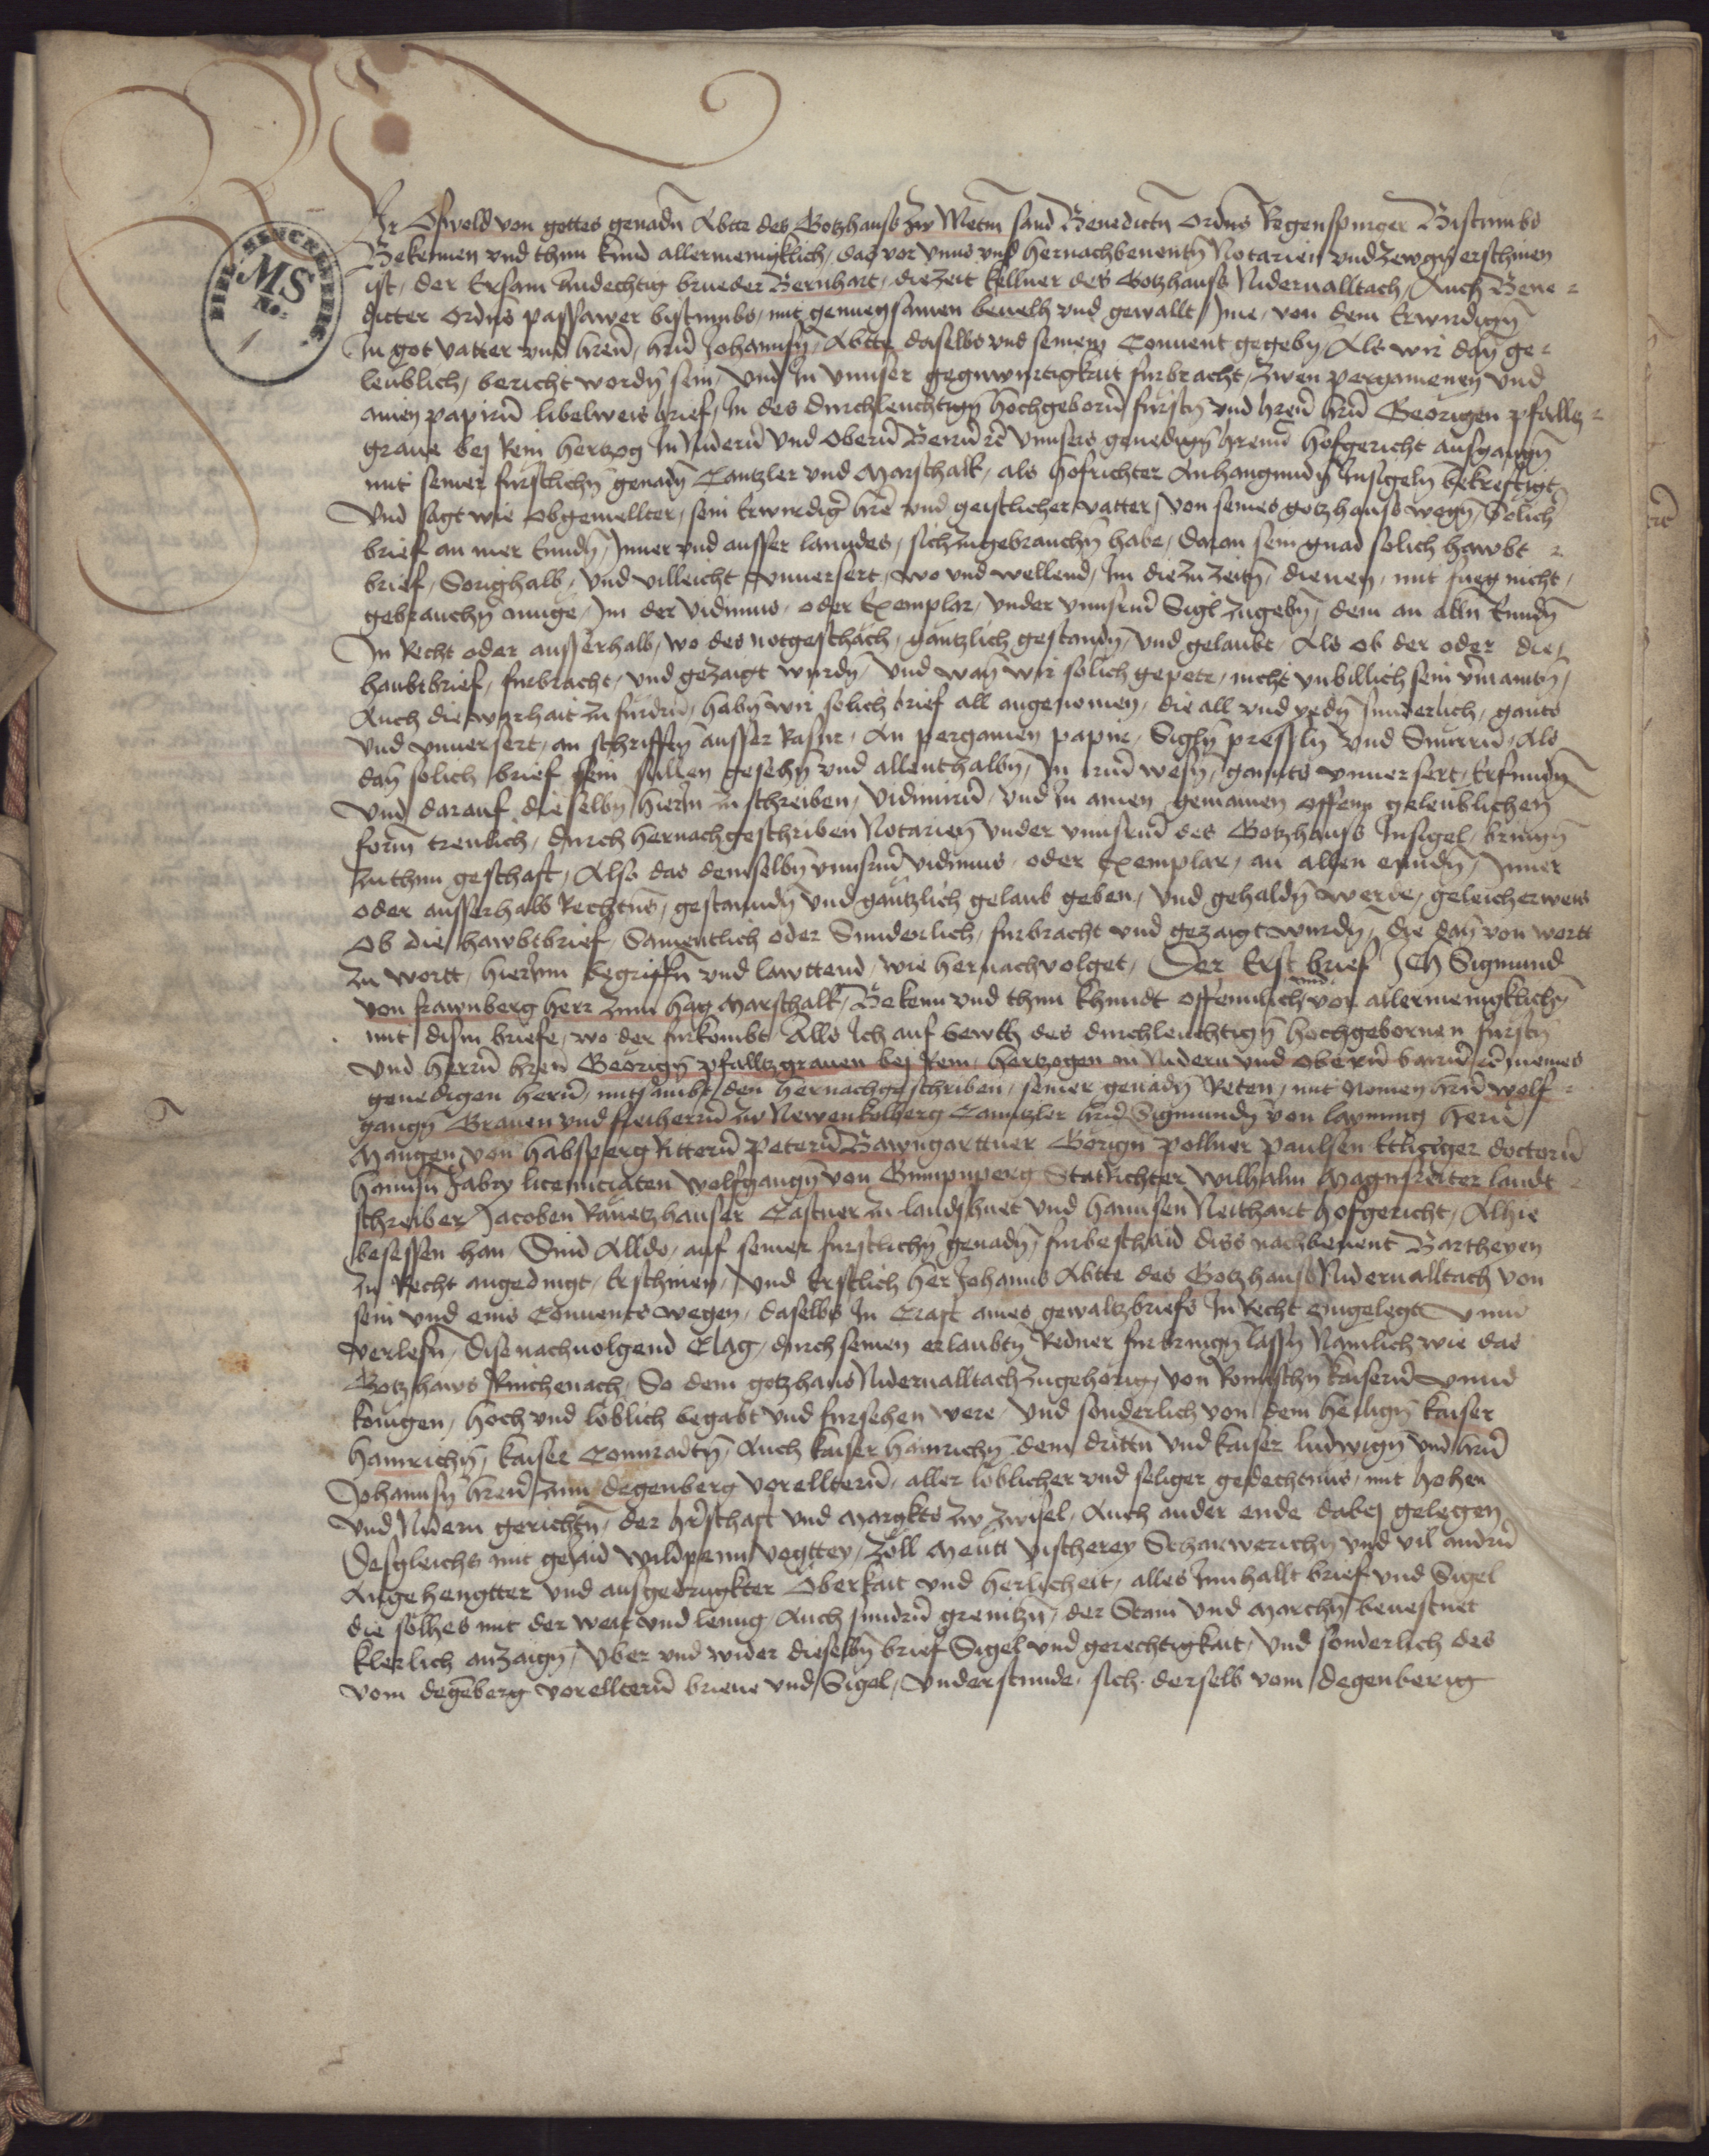 BIBL. SENCKENBERG.
MS
No:
1
Wir Oswold von gottes genadn Abtt des Gotzhauss zw Metm sand Benedictn ordns Regenspurger Bistumbs
Bekennen vnd thun kund allermenigklich, das vor vnns vnd hernachbenentn Notarien vnd zewgn erschinen
ist, der Ersam andechtig brueder Bernhart, die zeit kellner des Gotzhauss Nidernalltach, Auch Bene-
dicter ordns passawer bistumbs, mit genuegsamen beuelh vnd gewallt Jme, von dem Erwirdign
In got vatter vnd hren, hrn Johannsn, Abtte daselbs vnd seinem Conuent gegebn, Als wir dan ge-
leublich, bericht wordn sein, Vnd In vnnser gegnwurtigkait furbracht, zwen pergamenen vnd
ainen papirn libelweis brief, In des durchleuchtign hochgeborn fursten vnd hren hrn Georigen pfallez-
graue bej Rein hertzog In Nidern vnd Obern Beirn etc vnnsers genedign hrenn hofgericht aufgangn
mit seiner furstlichn genadn Cantzler vnd Marschalk, als hofrichter Anhangundn Insigeln bekreftigt
Vnd sagt wie obgemellter, sein Erwirdiger hre vnd geistlicher vatter, von seines gotzhauss wegn, Solich
brief an mer Ennden, Inner vnd ausser lanndes, sich zugebrauchn habe, daran sein gnad solich hawbt-
brief, Sorighalb, vnd villeicht vnuersert, wo vnd wellend, Im die zu zeitn, dienen, mit fueg nicht,
gebrauchn muge, Im der Vidimus, oder Exemplar, vnder vnnserm Sigl zugebn, dem an alln Enndn
In Recht oder ausserhalb, wo des notgeschach, gantzlich gestandn, vnd gelaubt, Als ob der oder die,
haubtbrief, furbracht, vnd gezaigt wurdn, vnd wan wir solich gepete, nicht vnbillich sein vermaintn,
Auch die warhait zu furdrn, habn wir solich brief all angenomen, die all vnd yedn sunderlich, gants
vnd vnuersert, an schrifftn ausser Rasur, An pergamen papir, Sigln presseln vnd Snurrn, Als
dan solich brief sein sullen gesehn vnd allenthalbn, In irm wesn, gannts vnuersert, Erfundn
Vnd darauf, dieselbn hierin zu schreiben, Vidimirn, vnd In ainen gemainen offenn geleublichen
form treulich, durch hernachgeschriben Notarien vnder vnnserm des Gotzhauss Insigel, bringn
zuthun geschaft, Also das demselbn vnnserm vidimus, oder Exemplar, an allen enndn, Inner
oder ausserhalb Rechtns, gestanndn vnd gantzlich gelaub geben, vnd gehaldn werde, geleicherweis
Ob die hawbtbrief, Samentlich oder Sunderlich, furbracht vnd gezaigt wurdn, die dan von wortt
zu wortt, hierinn begriffn vnd lawttend, wie hernachvolget, Der Erst brief Ich Sigmund
von frawnberg herr zum hag Marschalk, Bekenn vnd thun khundt offennlich vnd vor allermenigklichn
mit disem briefe, wo der furkombt Alls Ich auf beuelh des durchleuchtign hochgebornen fursten
vnd herrn hren Georign pfalltzgrauen bej Rein, hertzogen in Nidern vnd Obern bairn etc meines
genedigen hern, mitsambt den hernachgeschriben, seiner genadn Reten, mit Nomen hrn wolf-
gangn Grauen vnd freiherrn zu Newenkolberg Canntzler hrn Sigmundn von layming hern
Mangen von habsperg Rittern Petern Bawngarttner Gorign pollner Paulsen Ettlinger doctorn
hannsn Fabry licenniciaten Wolfgangn von Gumpnperg Statrichter Wilhalm Magnsreiter landt-
schreiber Jacoben Rauetzhauser Castner zu landshuet vnd hannsen Neithart hofgericht, Alhie
besessen han Sind Alldo, auf seiner furstlichn genadn, furbeschaid diss nachbenent Bartheyen
zu Recht angedingt, Erschinen, Vnd Erstlich her Johanns Abtte des Gotzhauss Nidernalltach von
sein vnd eins Conuents wegen, daselbs In Craft aines gewaltzbriefs In Recht eingelegt vnnd
verlesn, dise nachuolgend Clag, durch seinen erlaubtn Redner furbringn lassn Namlich wie das
Gotzhaws Rinchenach, So dem gotzhaus Nidernalltach zugehorig, von Romischn kaisern vnnd
konigen, hoch vnd loblich begabt vnd fursehen were, Vnd sonderlich von dem heilign kaiser
hainrichn, kaiser Connradtn, Auch kaiser hainrichn dem drittn vnd kaiser ludwign vnd hrn
Johannsn hren zum degenberg vorelltern, aller loblicher vnd seliger gedechtnus, mit hohen
vnd Nidern gerichtn, der hrschaft vnd Margkts zw zwisel, Auch ander ende dabej gelegen
Desgleichs mit gejaid wildpann vogttey, zoll Meutt vischerey Scharwerichn vnd vil andrn
Angehengtter vnd ausgedrugkter Oberkait vnd herlicheit, alles Innhallt brief vnd Sigel
die solhes mit der weit vnd leng, Auch sundrn grenitzn, der Stain vnd Marchn beuestnet
klerlich anzaign, Vber vnd wider dieselbn brief Sigel vnd gerechtigkait, Vnd sonderlich des
vom degenberg vorelltern brieue vnd Sigel, Vnderstunde, sich derselb vom degenberig